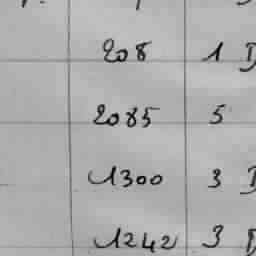 208 1 D
2085 5
1300 3 D
1242 3 D